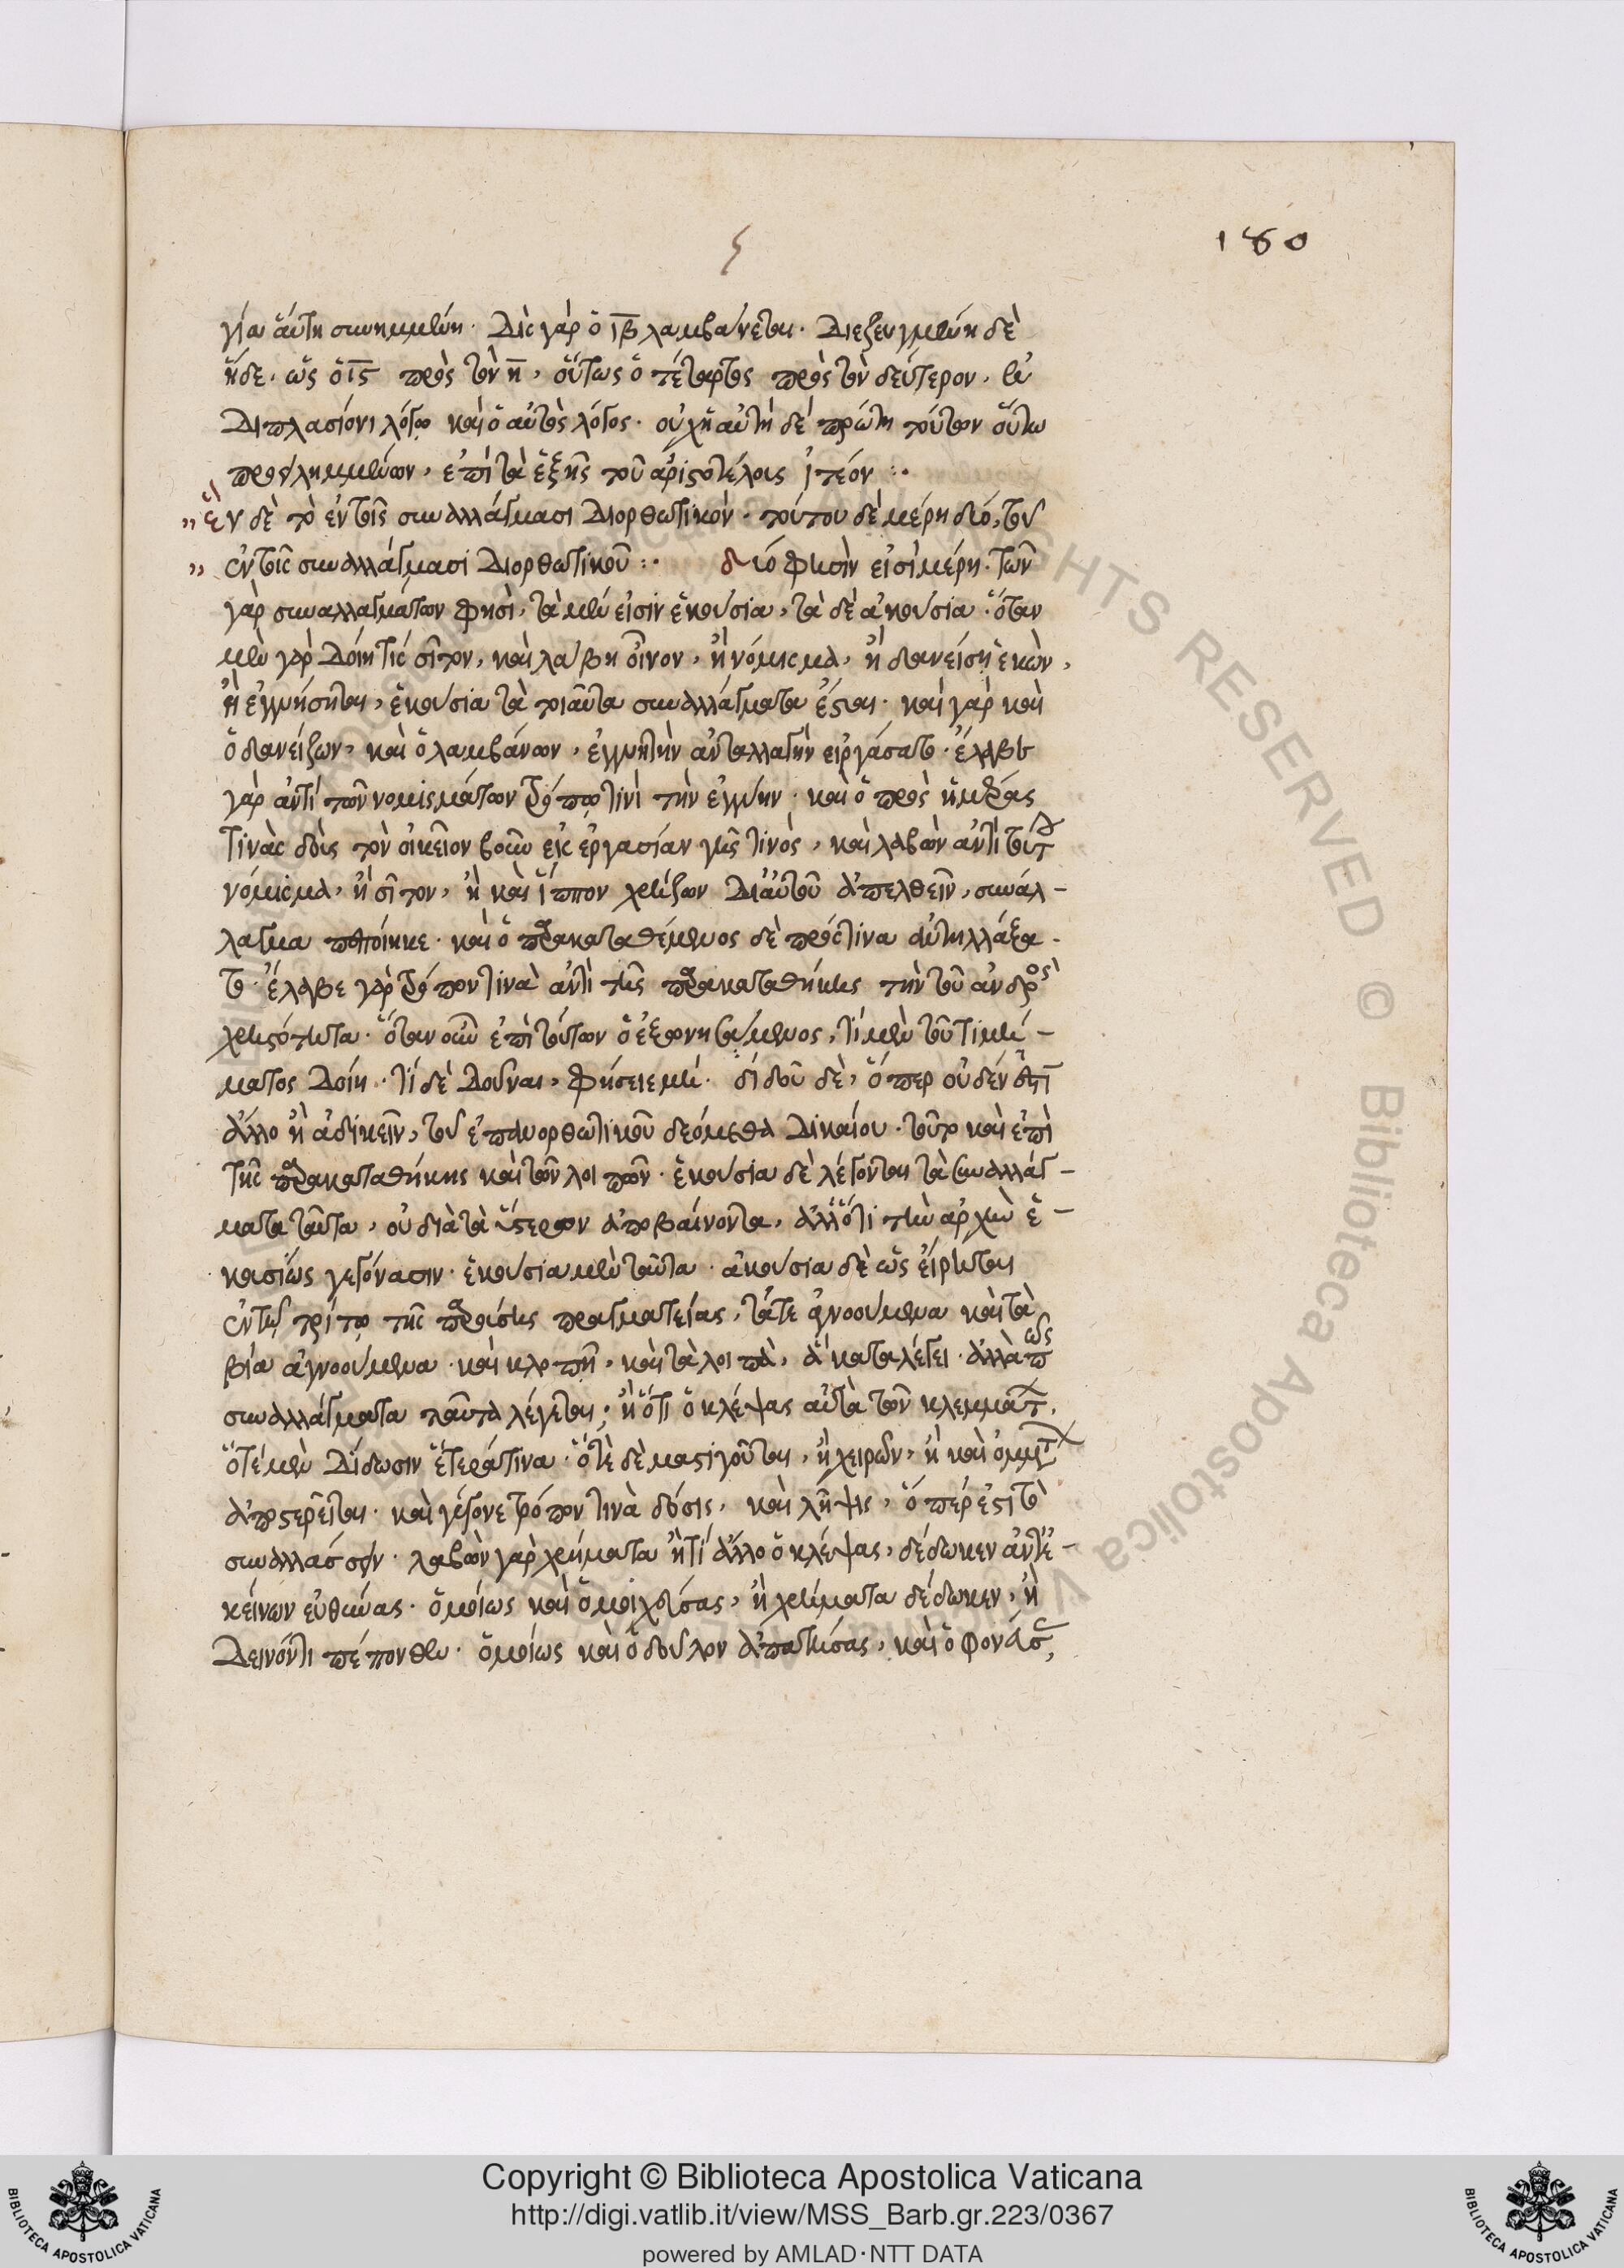 180
ς
γία αὕτη συνημμένη· Δὶς γὰρ ὁ ιβ λαμβάνεται· Διεζευγμένη δὲ
ἥδε· ὡς ὁ ις πρὸς τὸν η, οὕτως ὁ τέταρτος πρὸς τὸν δεύτερον, ἐν
Διπλασίονι λόγῳ καὶ ὁ αὐτὸς λόγος· οὐχ ἡ αὐτὴ δέ πρώτη τούτων οὕτω
προσλημμένων, ἐπὶ τὰ ἑξῆς τοῦ ἀριστοτέλους ἰτέον :·
ἓν δὲ τὸ ἐν τοῖς συναλλάγμασι Διορθωτικόν· τούτου δὲ μέρη δύο, τοῦ
ἐν τοῖς συναλλάγμασι Διορθωτικοῦ :· δύο φησὶν εἰσὶ μέρη· τῶν
γὰρ συναλλαγμάτων φησὶ, τὰ μέν εἰσιν ἑκούσια, τὰ δὲ ἀκούσια· ὅταν
μὲν γὰρ Δοίη τίς σῖτον, καὶ λάβῃ οἶνον, ἢ νόμισμα, ἢ δανείσῃ ἑκὼν,
ἢ ἐγγυήσηται, ἑκούσια τὰ τοιαῦτα συναλλάγματα ἔσται· καὶ γὰρ καὶ
ὁ δανείζων, καὶ ὁ λαμβάνων, ἐγγυητὴν ἀνταλλαγὴν εἰργάσατο· ἔλαβε
γὰρ ἀντὶ τῶν νομισμάτων τρόπῳ τινὶ τὴν ἐγγύην· καὶ ὁ πρὸς ἡμέρας
τινὰς δοὺς τὸν οἰκεῖον βοῦν εἰς ἐργασίαν γῆς τινὸς, καὶ λαβὼν ἀντὶ τούτ
νόμισμα, ἢ σῖτον, ἢ καὶ ἵππον χρῄζων Δι αὐτοῦ ἀπελθεῖν, συνάλ-
λαγμα πεποίηκε· καὶ ὁ παρακαταθέμενος δὲ πρός τινα ἀντηλλάξα-
το· ἔλαβε γὰρ τρόπον τινὰ ἀντὶ τῆς παρακαταθήκης τὴν τοῦ ἀνδρὸς
χρηστότητα· ὅταν οὖν ἐπὶ τούτων ὁ ἐξωνησάμενος, τί μὲν τοῦ τιμή-
ματος Δοίη· τί δὲ Δοῦναι, φήσειε μή· δίδου δὲ, ὅπερ οὐδέν ἐστι
ἄλλο ἢ ἀδικεῖν, τοῦ ἐπανορθωτικοῦ δεόμεθα Δικαίου· τοῦτο καὶ ἐπὶ
τῆς παρακαταθήκης καὶ τῶν λοιπῶν· ἑκούσια δὲ λέγονται τὰ συναλλάγ-
ματα ταῦτα, οὐ διὰ τὰ ὕστερον ἀποβαίνοντα, ἀλλ ὅτι τὴν ἀρχὴν ἑ-
κουσίως γεγόνασιν· ἑκούσια μὲν ταῦτα· ἀκούσια δὲ ὡς εἴρηται
ἐν τῷ τρίτῳ τῆς παρούσης πραγματείας, τά τε ἀγνοούμενα καὶ τὰ
βίᾳ ἀγνοούμενα· καὶ κλοπῇ, καὶ τὰ λοιπὰ, ἃ καταλέγει· ἀλλὰ πως
συναλλάγματα ταῦτα λέγεται; ἢ ὅτι ὁ κλέψας αὐτὰ τῶν κλεμμάτ,
ὁτὲ μὲν Δίδωσιν ἕτερά τινα· ὁτὲ δὲ μαστιγοῦται, ἢ χειρῶν, ἢ καὶ ὀμμτ
ἀποστερεῖται· καὶ γέγονε τρόπον τινὰ δόσις, καὶ λῆψις, ὅπερ ἐστὶ τὸ
συναλλάσσειν· λαβὼν γὰρ χρήματα ἢ τὶ ἄλλο ὁ κλέψας, δέδωκεν ἀντ ἐ-
κείνων εὐθύνας· ὁμοίως καὶ ὁ μοιχεύσας, ἢ χρήματα δέδωκεν, ἢ
Δεινόν τι πέπονθεν· ὁμοίως καὶ ὁ δοῦλον ἀπατήσας, καὶ ὁ φονεύσ,
Copyright © Biblioteca Apostolica Vaticana
http://digi.vatlib.it/view/MSS_Barb.gr.223/0367
powered by AMLAD·NTT DATA